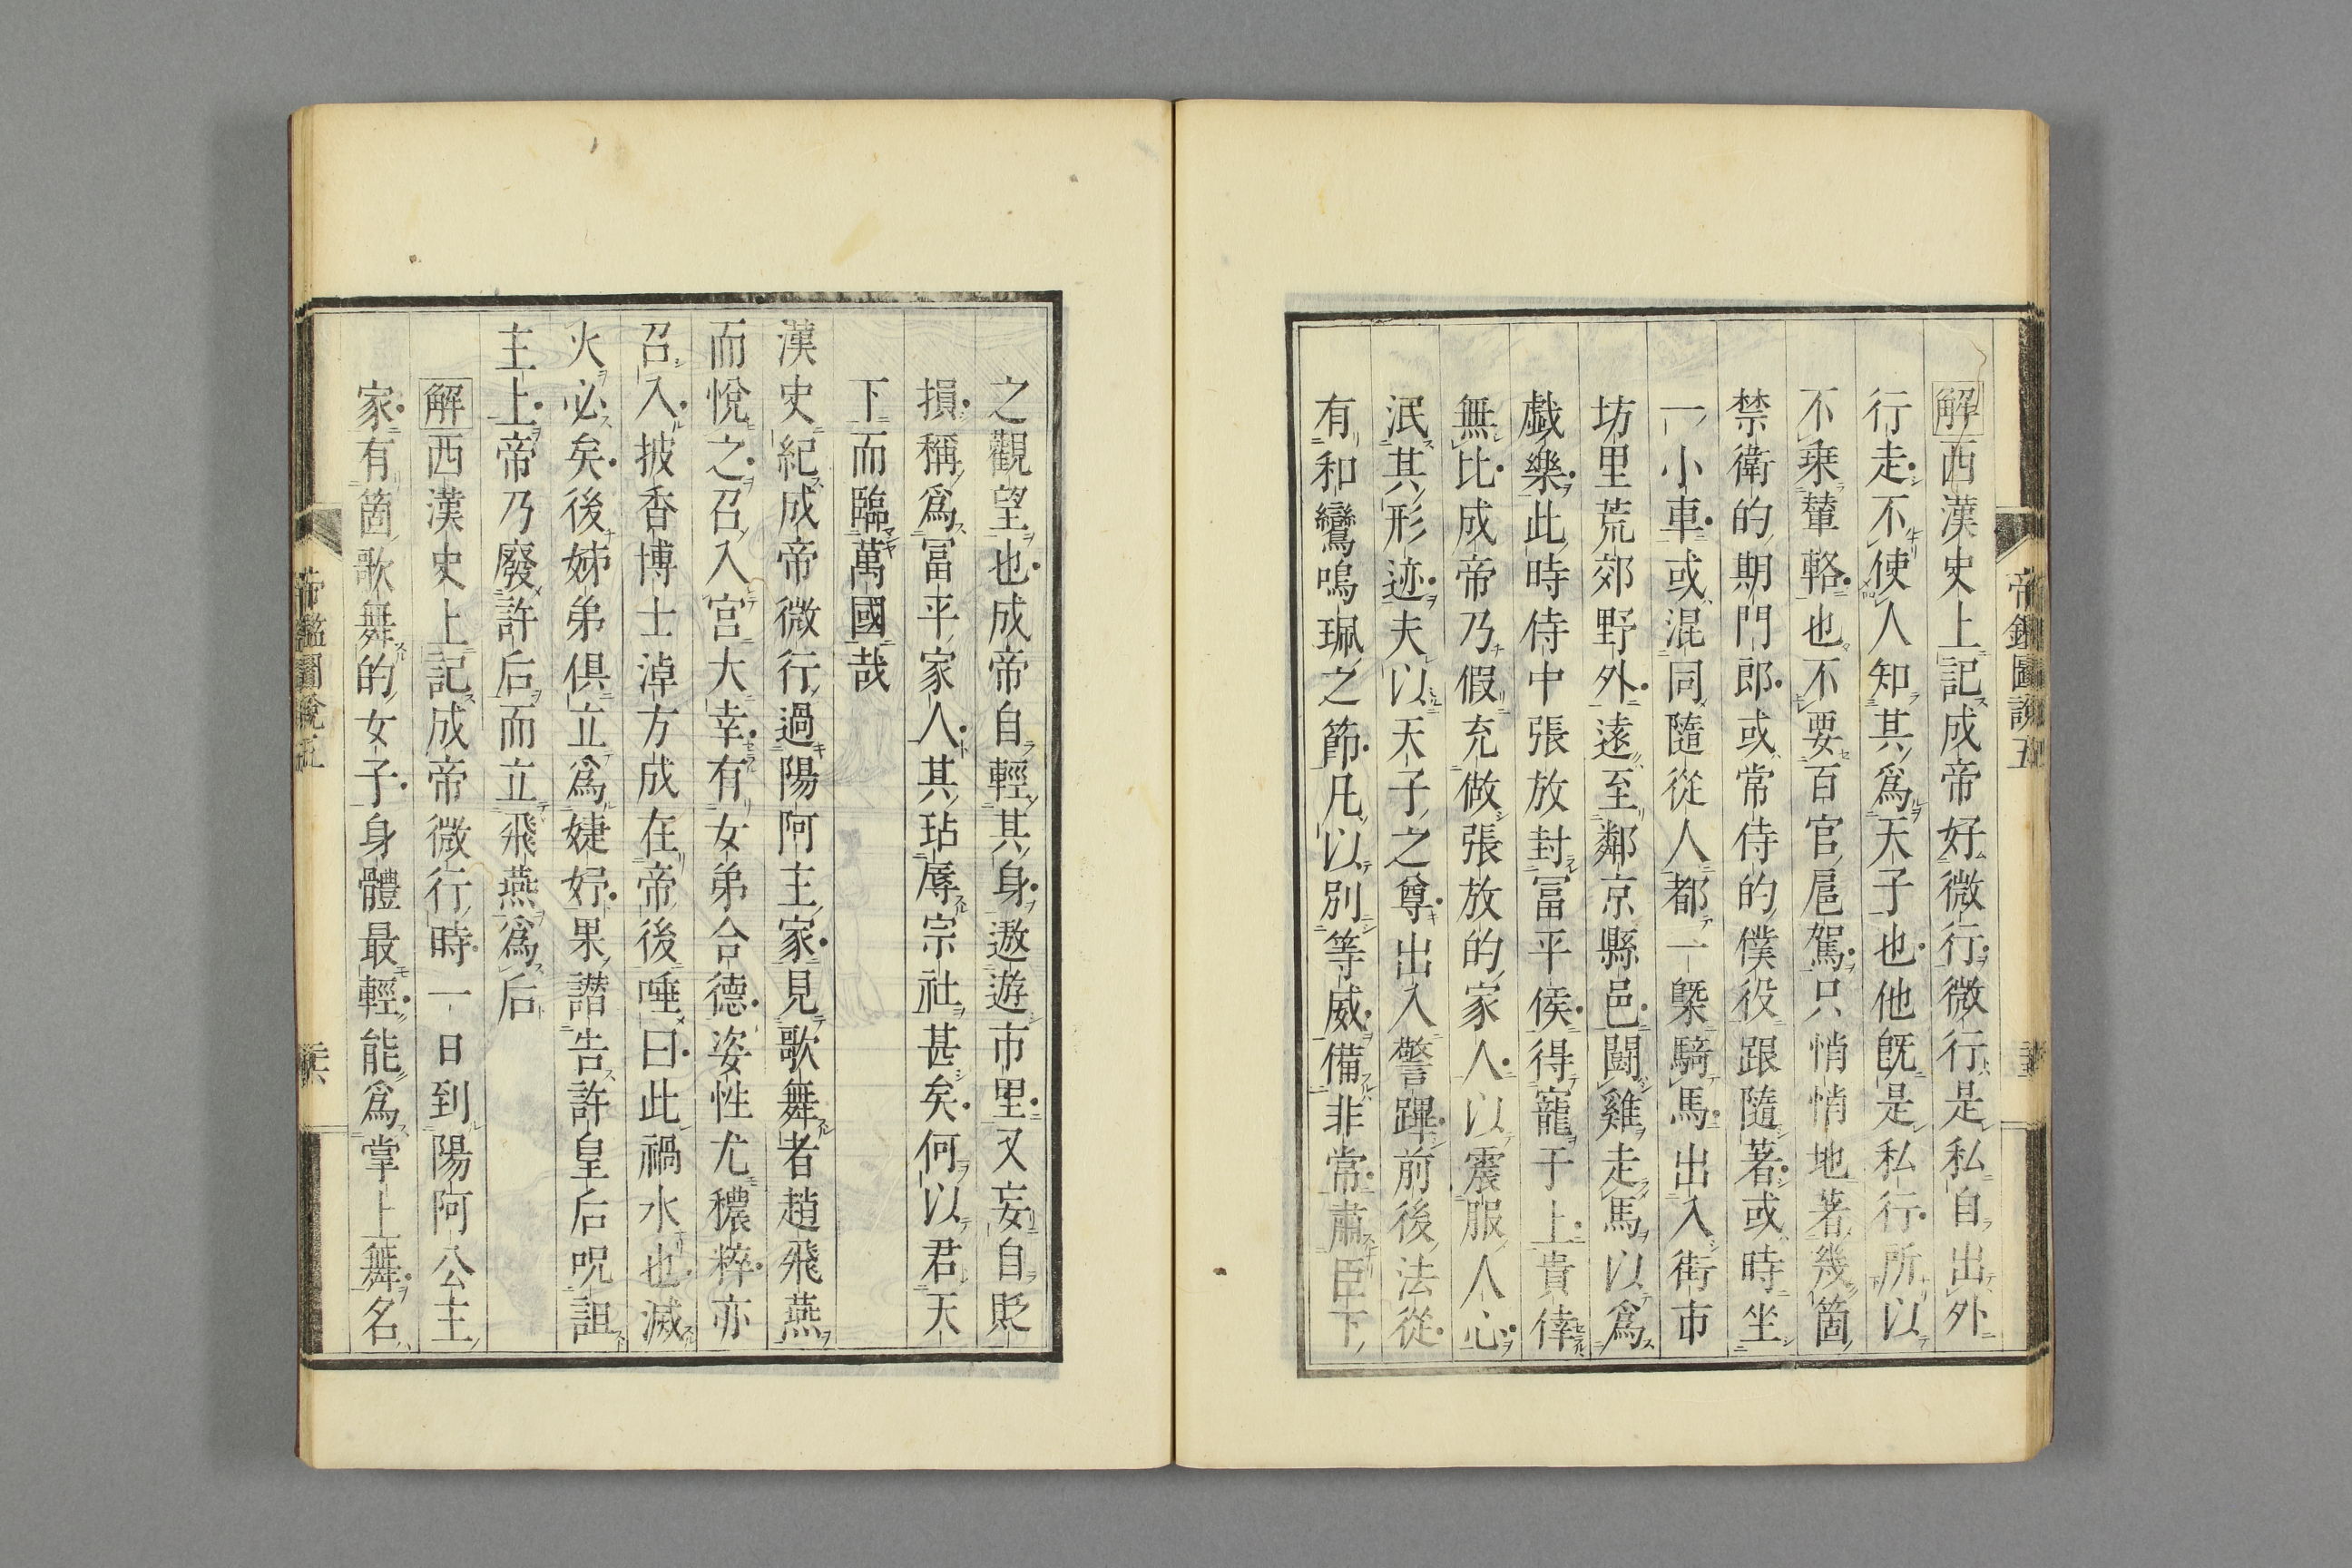 帝鑑圖說五
解西漢史上記成帝好微行微行是私自出外
行走不使人知其爲天子也他旣是私行所以
不乗輦輅也不要百官扈駕只悄悄地著幾箇
禁衛的期門郎或常侍的僕役跟隨著或時坐
一小車或混同隨從人都一槩騎馬出入街市
坊里荒郊野外遠至鄰京縣邑鬪雞走馬以爲
戯樂此時侍中張放封冨平侯得寵于上貴倖
無比成帝乃假充做張放的家人以震服人心
泯其形迹夫以天子之尊出入警蹕前後法從
有和鸞鳴珮之節凡以別等威備非常肅臣下
之觀望也成帝自輕其身遨遊市里又妄自貶
損稱爲冨平家人其玷辱宗社甚矣何以君天
下而臨萬國哉
漢史紀成帝微行過陽阿主家見歌舞者趙飛燕
而悅之召入宮大幸有女弟合德姿性尤穠粹亦
召入披香博士淖方成在帝後唾曰此禍水也滅
火必矣後姊弟俱立爲婕妤果譖告許皇后呪詛
主上帝乃廢許后而立飛燕爲后
解西漢史上記成帝微行時一日到陽阿公主
家有箇歌舞的女子身體最輕能爲掌上舞名
帝鑑圖說五